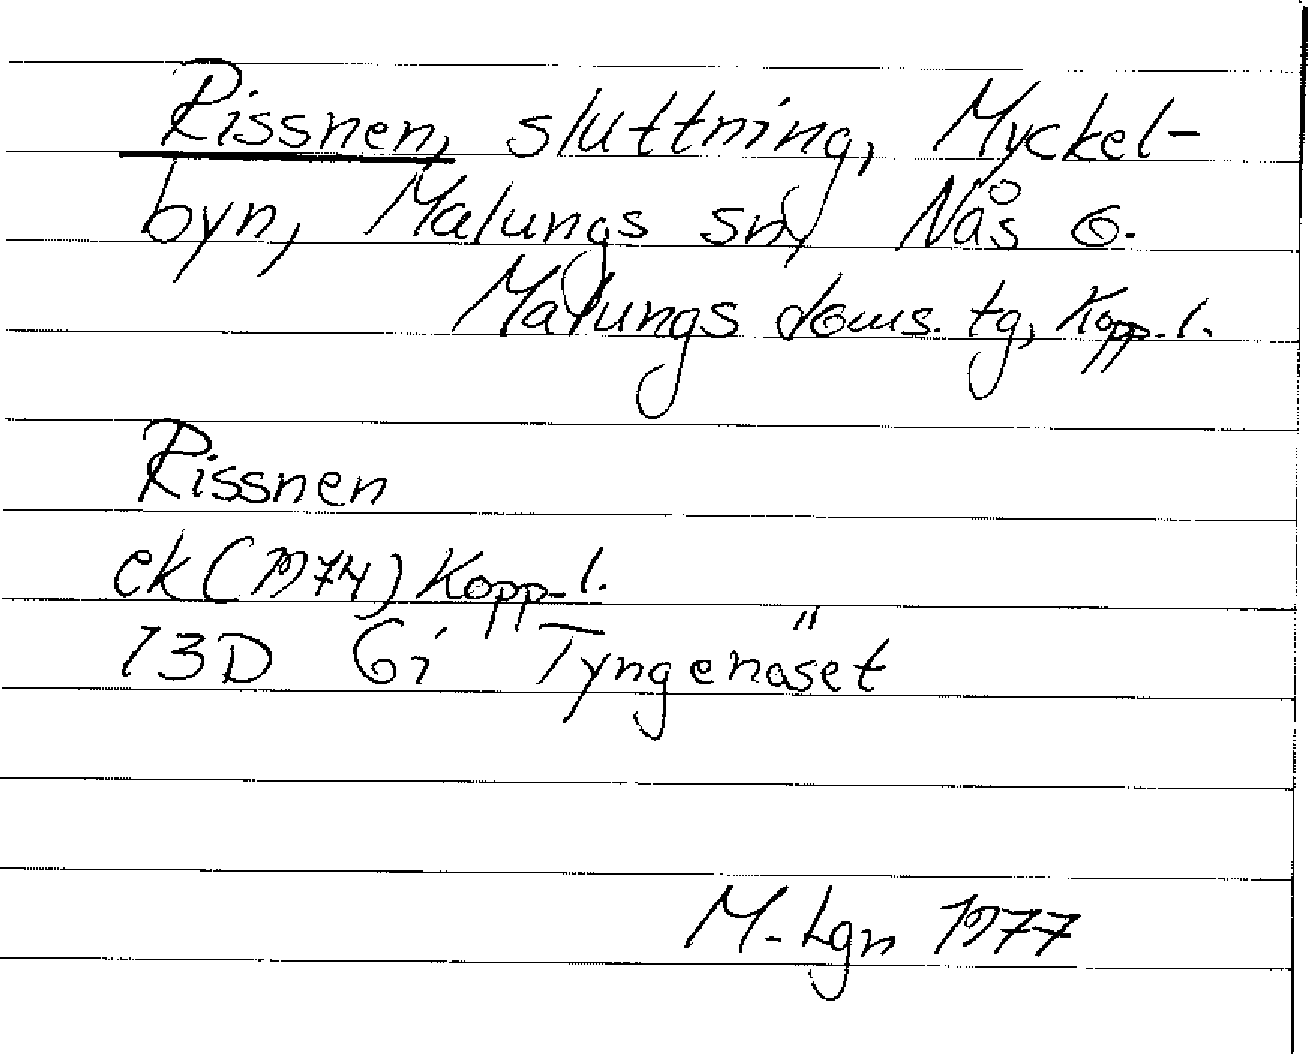 Rissnen, sluttning, Myckel-
byn, Malungs sn, Nås o.
Malungs doms. tg, Kopp. l.
Rissnen
ek (1974) Kopp. l.
13D 6i Tyngenäset
M-Lgn 1977